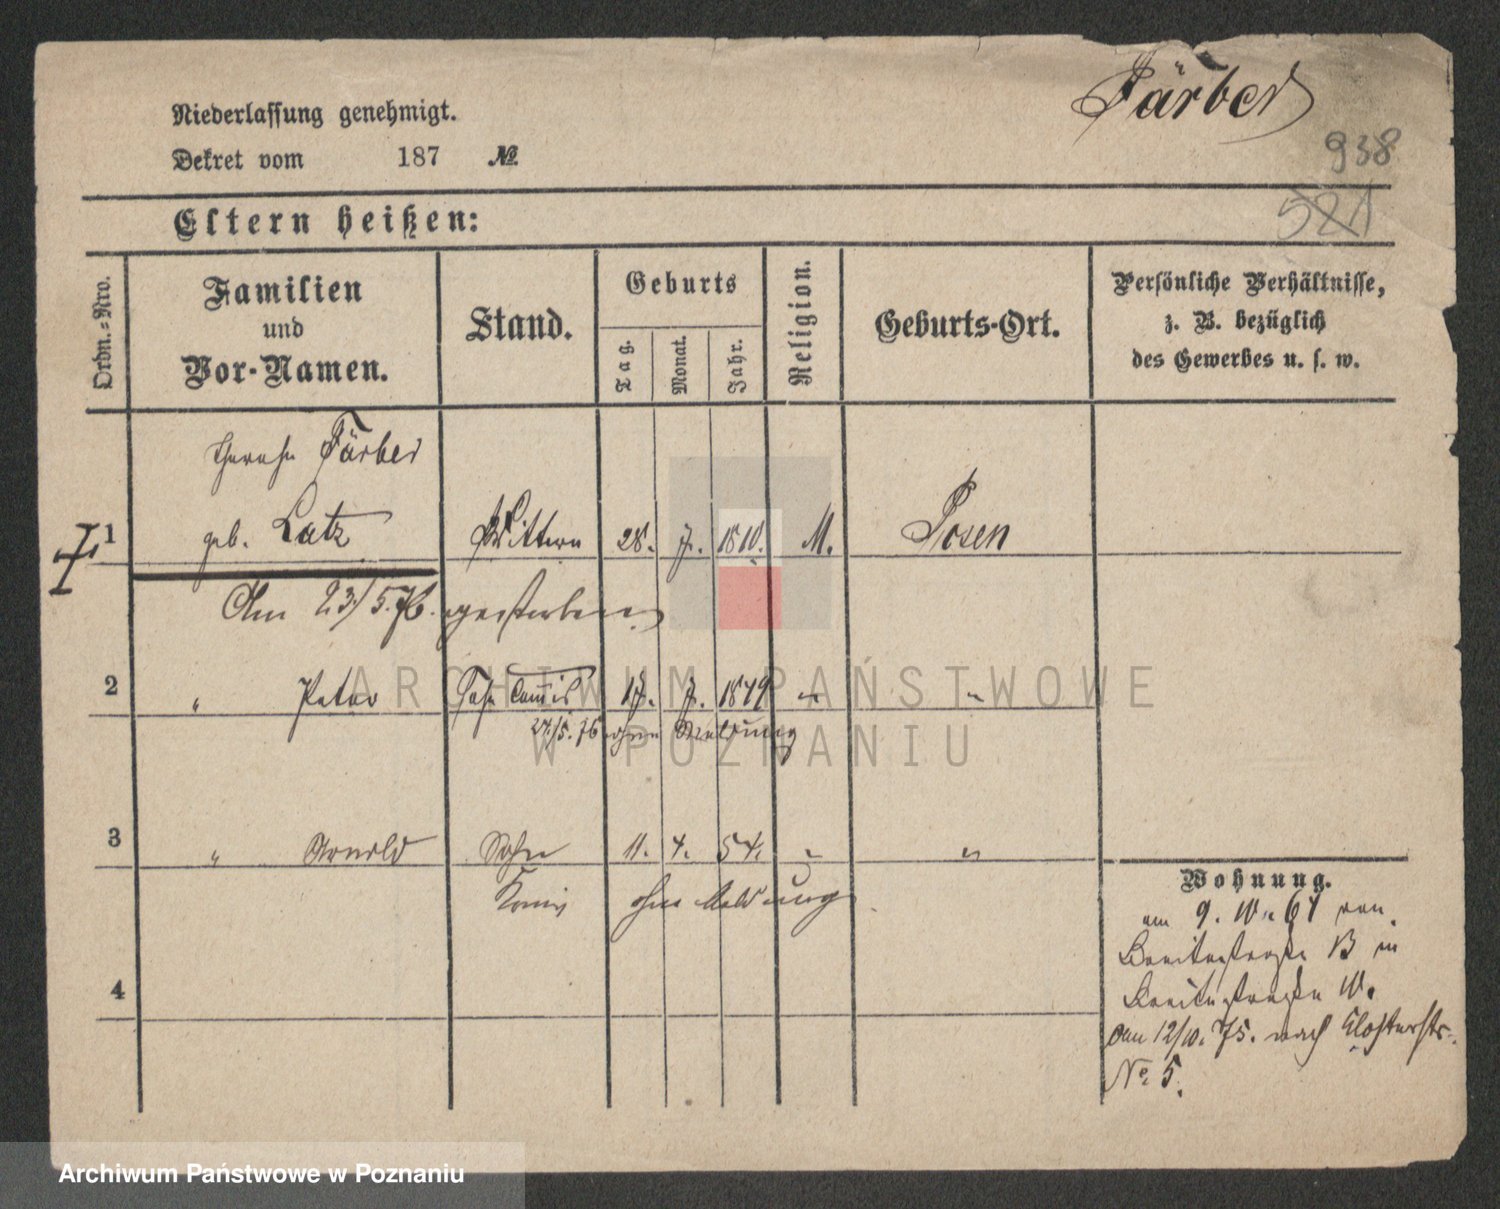 Färber
Niederlassung genehmigt.
Dekret vom 187 №
938
521
Eltern heißen:
Ordn.=Nro.
Familien
und
Vor-Namen.
Stand.
Geburts
Tag.
Monat.
Jahr.
Religion.
Geburts-Ort.
Persönliche Verhältnisse,
z. B. bezüglich
des Gewerbes u. s. w.
Färber
1 geb. Latz 28. 7. 1810. M. Posen
Am 23/5.76. gestorben
2 " Peter Sohn Commis 17. 7. 1849 " "
27./5.76 ohne Meldung
3 " Arnold Sohn 11. 4. 54. " "
ohne Meldung
4
Wohnung.
am 9. 10. 67 von
Breitestraße 13 in
Breitestraße 10.
am 12/10. 75. nach Klosterstr.
No 5.
ARCHIWUM PAŃSTWOWE
W POZNANIU
Archiwum Państwowe w Poznaniu